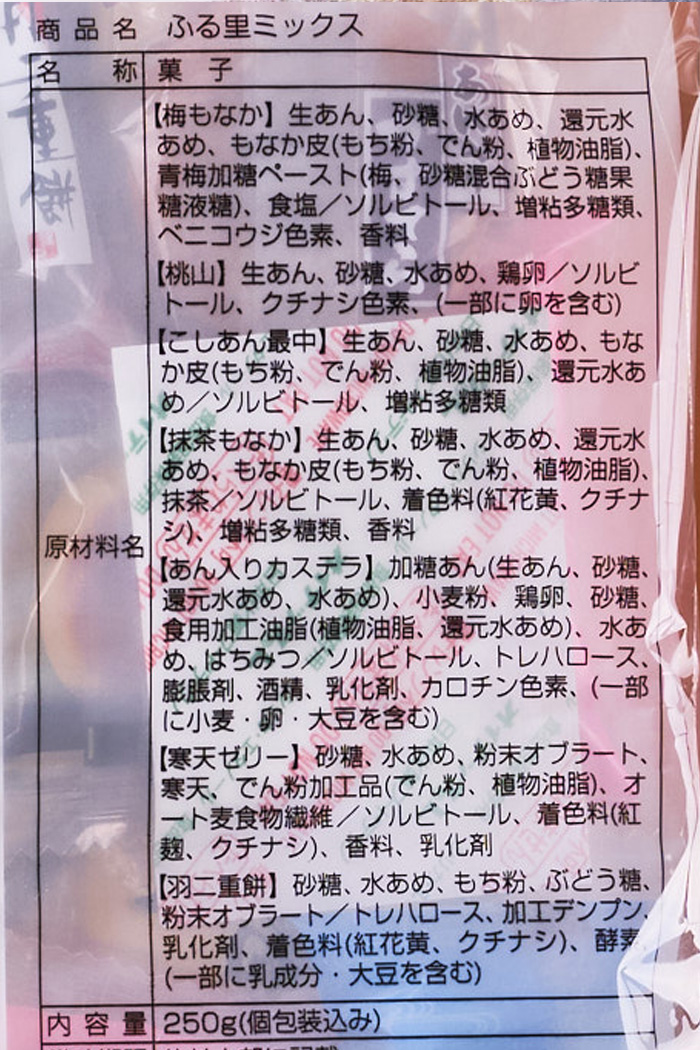 商品名 ふる里ミックス
名称 菓子
原材料名
【梅もなか】生あん、砂糖、水あめ、還元水
あめ、もなか皮(もち粉、でん粉、植物油脂)、
青梅加糖ペースト(梅、砂糖混合ぶどう糖果
糖液糖)、食塩／ソルビトール、増粘多糖類、
ベニコウジ色素、香料
【桃山】生あん、砂糖、水あめ、鶏卵／ソルビ
トール、クチナシ色素、(一部に卵を含む)
【こしあん最中】生あん、砂糖、水あめ、もな
か皮(もち粉、でん粉、植物油脂)、還元水あ
め／ソルビトール、増粘多糖類
【抹茶もなか】生あん、砂糖、水あめ、還元水
あめ、もなか皮(もち粉、でん粉、植物油脂)、
抹茶／ソルビトール、着色料(紅花黄、クチナ
シ)、増粘多糖類、香料
【あん入りカステラ】加糖あん(生あん、砂糖、
還元水あめ、水あめ)、小麦粉、鶏卵、砂糖、
食用加工油脂(植物油脂、還元水あめ)、水あ
め、はちみつ／ソルビトール、トレハロース、
膨脹剤、酒精、乳化剤、カロチン色素、(一部
に小麦・卵・大豆を含む)
【寒天ゼリー】砂糖、水あめ、粉末オブラート、
寒天、でん粉加工品(でん粉、植物油脂)、オ
ート麦食物繊維／ソルビトール、着色料(紅
麹、クチナシ)、香料、乳化剤
【羽二重餅】砂糖、水あめ、もち粉、ぶどう糖、
粉末オブラート／トレハロース、加工デンプン、
乳化剤、着色料(紅花黄、クチナシ)、酵素、
(一部に乳成分・大豆を含む)
内容量 250g(個包装込み)